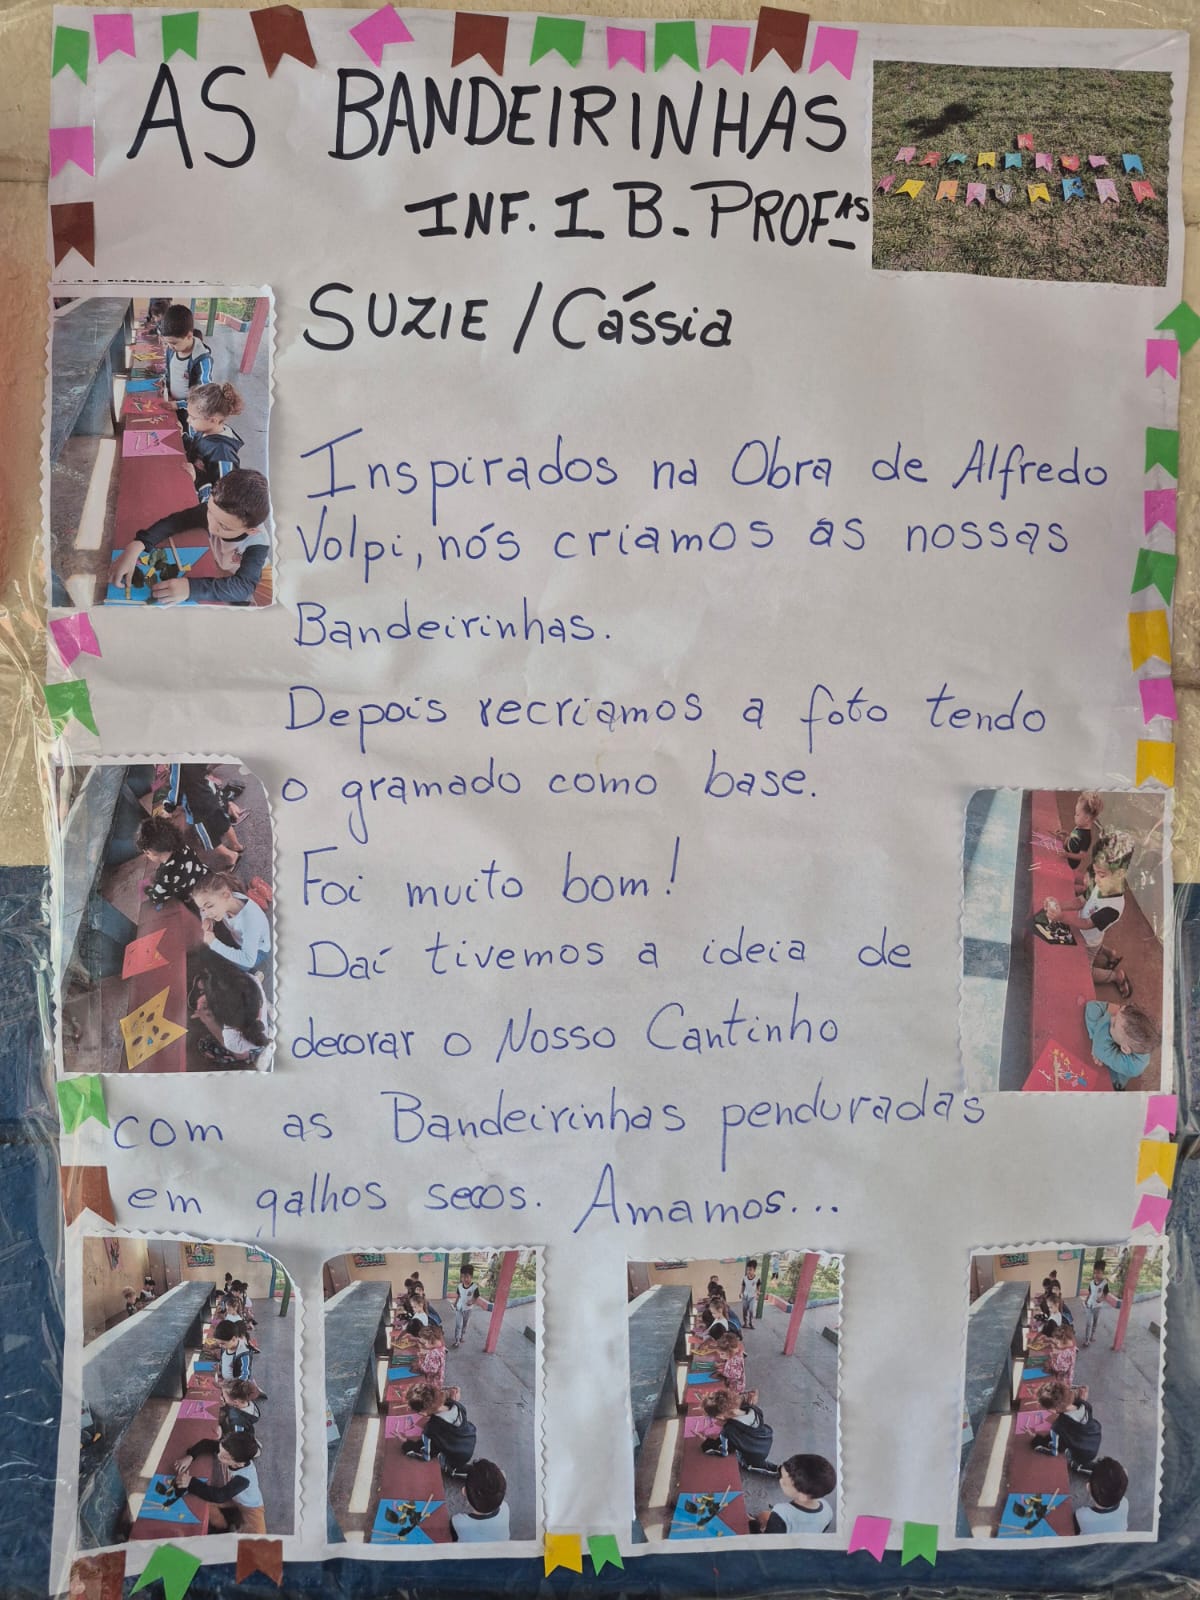 AS BANDEIRINHAS
INF. I B - PROFAS
SUZIE / Cássia
Inspirados na Obra de Alfredo
Volpi, nós criamos as nossas
Bandeirinhas.
Depois recriamos a foto tendo
o gramado como base.
Foi muito bom!
Daí tivemos a ideia de
decorar o Nosso Cantinho
com as Bandeirinhas penduradas
em galhos secos. Amamos...